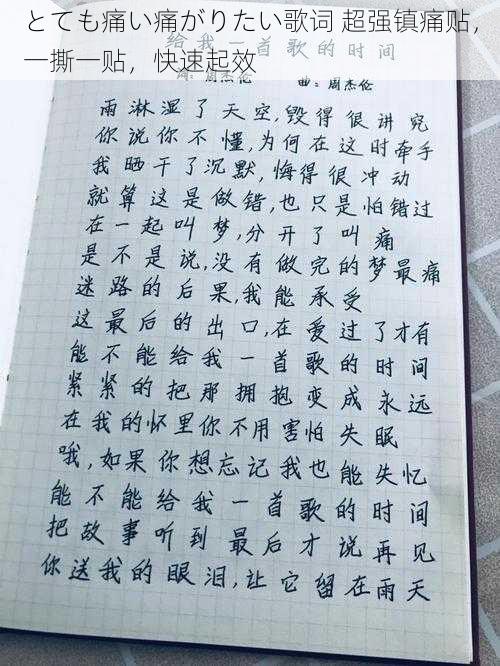 とても痛い痛がりたい歌词 超强镇痛贴，
一撕一贴，快速起效
给我一首歌的时间
词：周杰伦 曲：周杰伦
雨淋湿了天空,毁得很讲究
你说你不懂,为何在这时牵手
我晒干了沉默,悔得很冲动
就算这是做错,也只是怕错过
在一起叫梦,分开了叫痛
是不是说,没有做完的梦最痛
迷路的后果,我能承受
这最后的出口,在爱过了才有
能不能给我一首歌的时间
紧紧的把那拥抱变成永远
在我的怀里你不用害怕失眠
哦,如果你想忘记我也能失忆
能不能给我一首歌的时间
把故事听到最后才说再见
你送我的眼泪,让它留在雨天